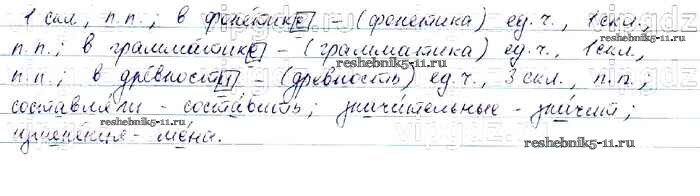 1 скл, п.п.; в фонетике – (фонетика) ед.ч., 1 скл.,
п.п.; в грамматике – (грамматика) ед.ч., 1 скл.,
п.п.; в древности – (древность) ед.ч., 3 скл., п.п.;
составляли – составить; значительные – значит;
изменения – мена.
reshebnik5-11.ru
reshebnik5-11.ru
reshebnik5-11.ru